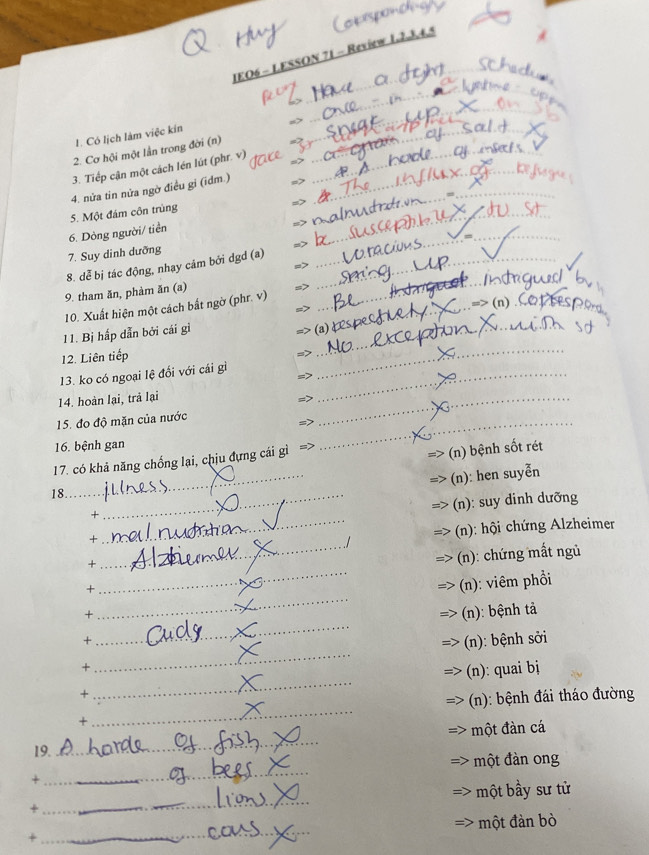 Q. Huy Correspondingly
IEO6 – LESSON 71 – Review 1,2,3,4,5
1. Có lịch làm việc kín => Have a tight schedule
2. Cơ hội một lần trong đời (n) => once - in - a lifetime
3. Tiếp cận một cách lén lút (phr. v) => sneak up X on sb
4. nửa tin nửa ngờ điều gì (idm.) => a grain of salt X
5. Một đám côn trùng => A horde of insects V
6. Dòng người/ tiền => The influx of
7. Suy dinh dưỡng => malnutrition =
8. dễ bị tác động, nhạy cảm bởi dgd (a) => be susceptible to st
9. tham ăn, phàm ăn (a) => voracious =
10. Xuất hiện một cách bất ngờ (phr. v) => spring up
11. Bị hấp dẫn bởi cái gì => Be intrigued by
12. Liên tiếp => (a) respectively X => (n)
13. ko có ngoại lệ đối với cái gì => No exception X with st
14. hoàn lại, trả lại => X
15. đo độ mặn của nước => X
16. bệnh gan => X
17. có khả năng chống lại, chịu đựng cái gì => X
18. illness X => (n) bệnh sốt rét
+ X => (n): hen suyễn
+ malnutrition V => (n): suy dinh dưỡng
+ Alzheimer X => (n): hội chứng Alzheimer
+ X => (n): chứng mất ngủ
+ X => (n): viêm phổi
+ X => (n): bệnh tả
+ X => (n): bệnh sởi
+ X => (n): quai bị
+ X => (n): bệnh đái tháo đường
19. A horde of fish X => một đàn cá
+ of bees X => một đàn ong
+ lions X => một bầy sư tử
+ cows X => một đàn bò